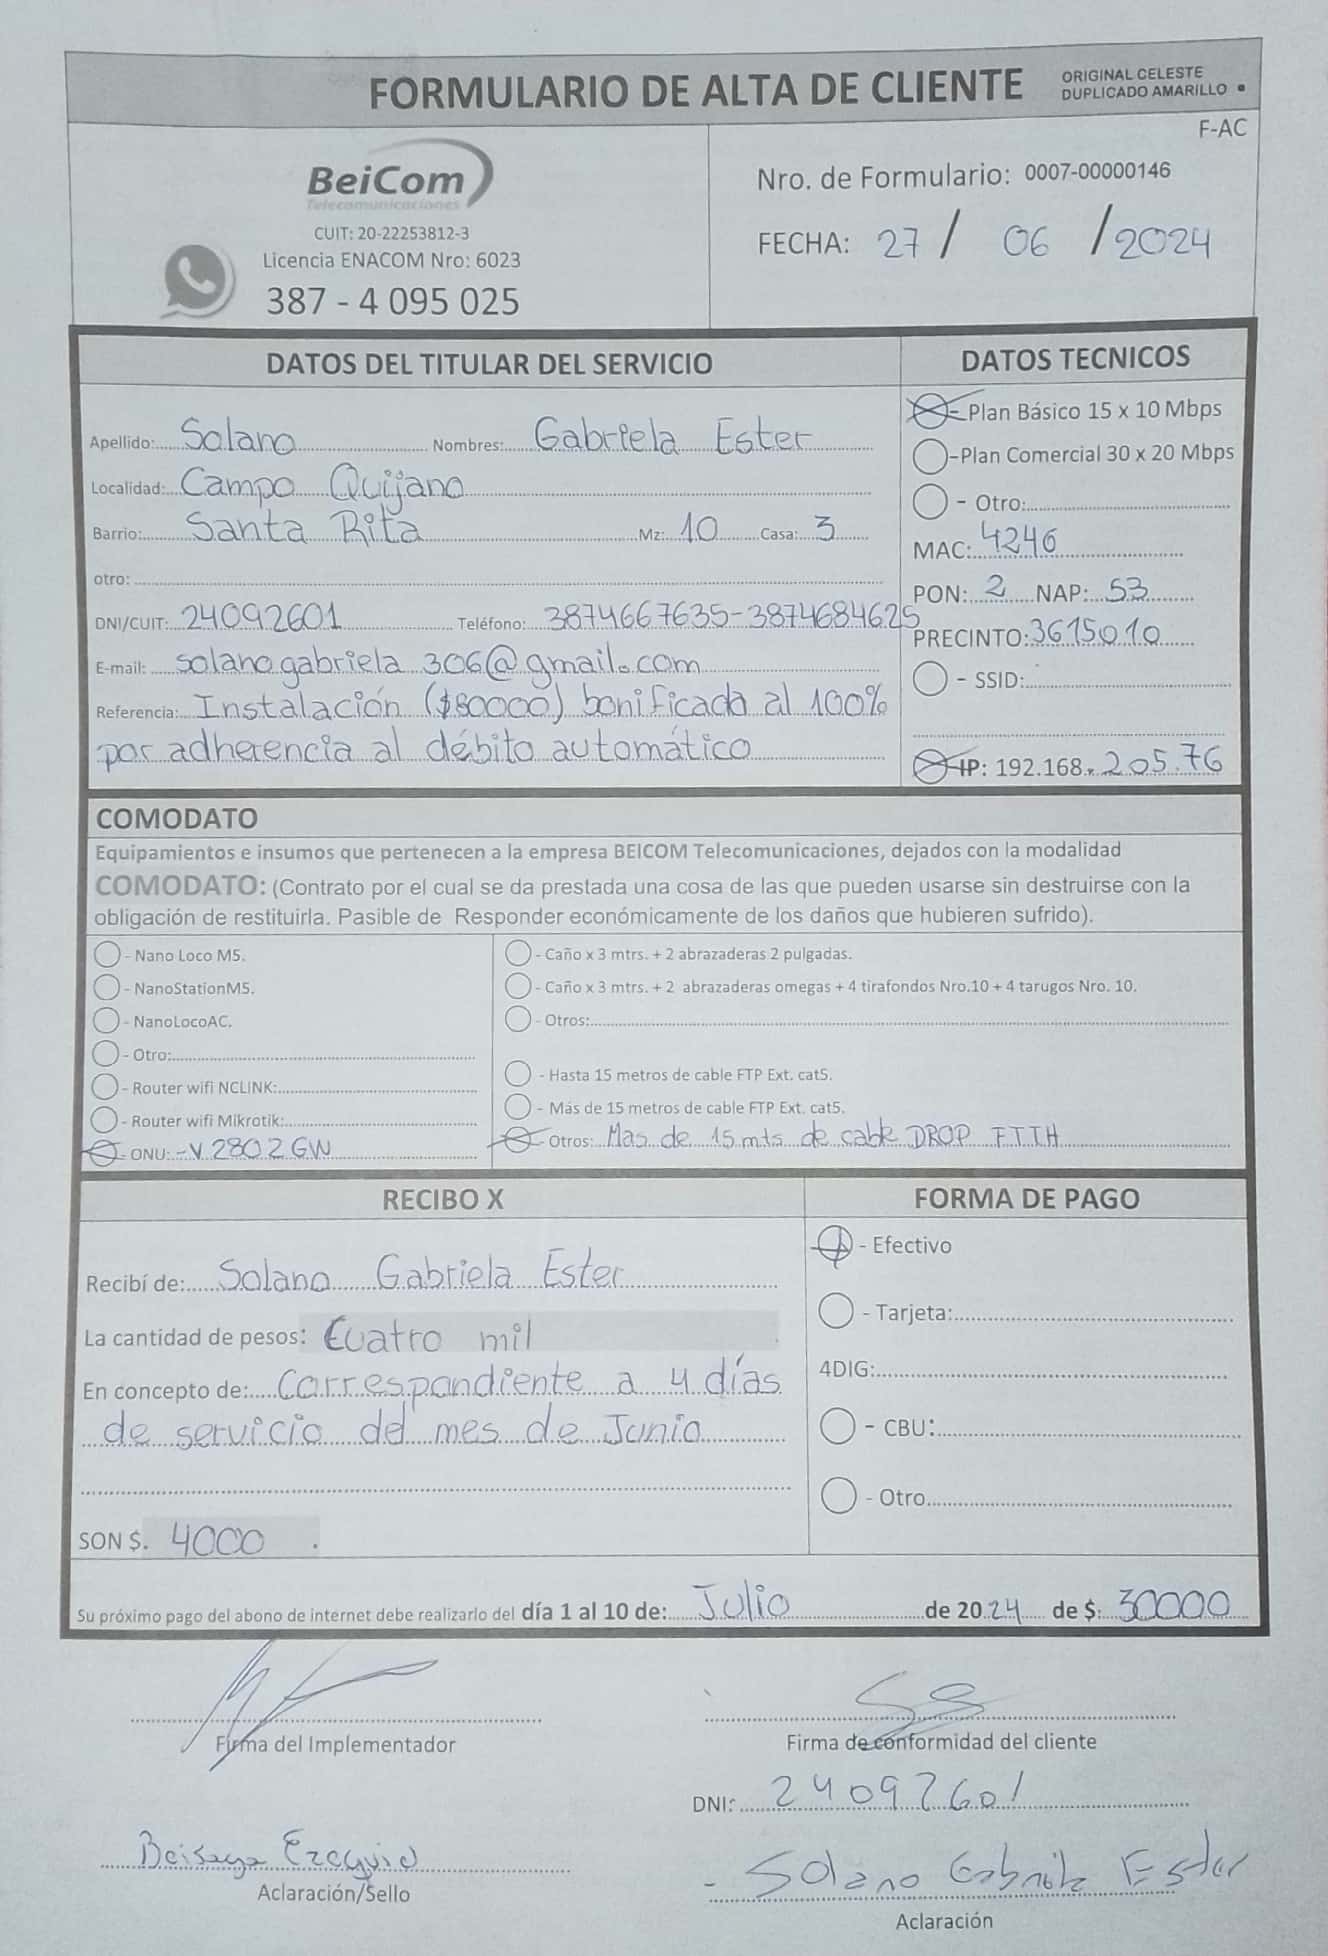 FORMULARIO DE ALTA DE CLIENTE
ORIGINAL CELESTE
DUPLICADO AMARILLO
F-AC
BeiCom
Telecomunicaciones
CUIT: 20-22253812-3
Licencia ENACOM Nro: 6023
387 - 4 095 025
Nro. de Formulario: 0007-00000146
FECHA: 27 / 06 / 2024
DATOS DEL TITULAR DEL SERVICIO
Apellido: Solano Nombres: Gabriela Ester
Localidad: Campo Quijano
Barrio: Santa Rita Mz: 10 Casa: 3
otro:
DNI/CUIT: 24092601 Teléfono: 3874667635-3874684625
E-mail: solanogabriela306@gmail.com
Referencia: Instalación ($80000) bonificada al 100%
por adherencia al débito automático
DATOS TECNICOS
- Plan Básico 15 x 10 Mbps
-Plan Comercial 30 x 20 Mbps
- Otro:
MAC: 4246
PON: 2 NAP: 53
PRECINTO: 3615010
- SSID:
IP: 192.168. 205.76
COMODATO
Equipamientos e insumos que pertenecen a la empresa BEICOM Telecomunicaciones, dejados con la modalidad
COMODATO: (Contrato por el cual se da prestada una cosa de las que pueden usarse sin destruirse con la
obligación de restituirla. Pasible de Responder económicamente de los daños que hubieren sufrido).
- Nano Loco M5.
- NanoStationM5.
- NanoLocoAC.
- Otro:
- Router wifi NCLINK:
- Router wifi Mikrotik:
- ONU: -V2802GW
- Caño x 3 mtrs. + 2 abrazaderas 2 pulgadas.
- Caño x 3 mtrs. + 2 abrazaderas omegas + 4 tirafondos Nro.10 + 4 tarugos Nro. 10.
- Otros:
- Hasta 15 metros de cable FTP Ext. cat5.
- Más de 15 metros de cable FTP Ext. cat5.
- Otros: Mas de 15 mts de cable DROP FTTH
RECIBO X
Recibí de: Solano Gabriela Ester
La cantidad de pesos: Cuatro mil
En concepto de: Correspondiente a 4 días
de servicio del mes de Junio
SON $. 4000 .
FORMA DE PAGO
- Efectivo
- Tarjeta:
4DIG:
- CBU:
- Otro
Su próximo pago del abono de internet debe realizarlo del día 1 al 10 de: Julio de 2024 de $: 30000
Firma del Implementador
Firma de conformidad del cliente
DNI: 24092601
Beisaga Ezequiel
Aclaración/Sello
- Solano Gabriela Ester
Aclaración